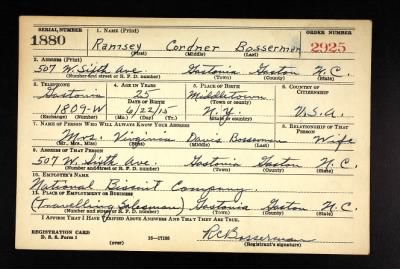 SERIAL NUMBER 1. NAME (Print) ORDER NUMBER
1880 Ramsey Cordner Bosserman 2925
(First) (Middle) (Last)
2. ADDRESS (Print)
507 W. Sixth Ave. Gastonia Gaston N.C.
(Number and street or R. F. D. number) (Town) (County) (State)
3. TELEPHONE 4. AGE IN YEARS 5. PLACE OF BIRTH 6. COUNTRY OF CITIZENSHIP
Gastonia 25 Middletown
DATE OF BIRTH (Town or county)
1809-W 6/22/15 N.Y. U.S.A.
(Exchange) (Number) (Mo.) (Day) (Yr.) (State or country)
7. NAME OF PERSON WHO WILL ALWAYS KNOW YOUR ADDRESS 8. RELATIONSHIP OF THAT PERSON
Mrs. Virginia Davis Bosserman Wife
(Mr., Mrs., Miss) (First) (Middle) (Last)
9. ADDRESS OF THAT PERSON
507 W. Sixth Ave. Gastonia Gaston N.C.
(Number and street or R. F. D. number) (Town) (County) (State)
10. EMPLOYER'S NAME
National Biscuit Company
11. PLACE OF EMPLOYMENT OR BUSINESS
(Travelling Salesman) Gastonia Gaston N.C.
(Number and street or R. F. D. number) (Town) (County) (State)
I AFFIRM THAT I HAVE VERIFIED ABOVE ANSWERS AND THAT THEY ARE TRUE.
REGISTRATION CARD
D. S. S. Form 1 (over) 16-17105 RC Bosserman
(Registrant's signature)